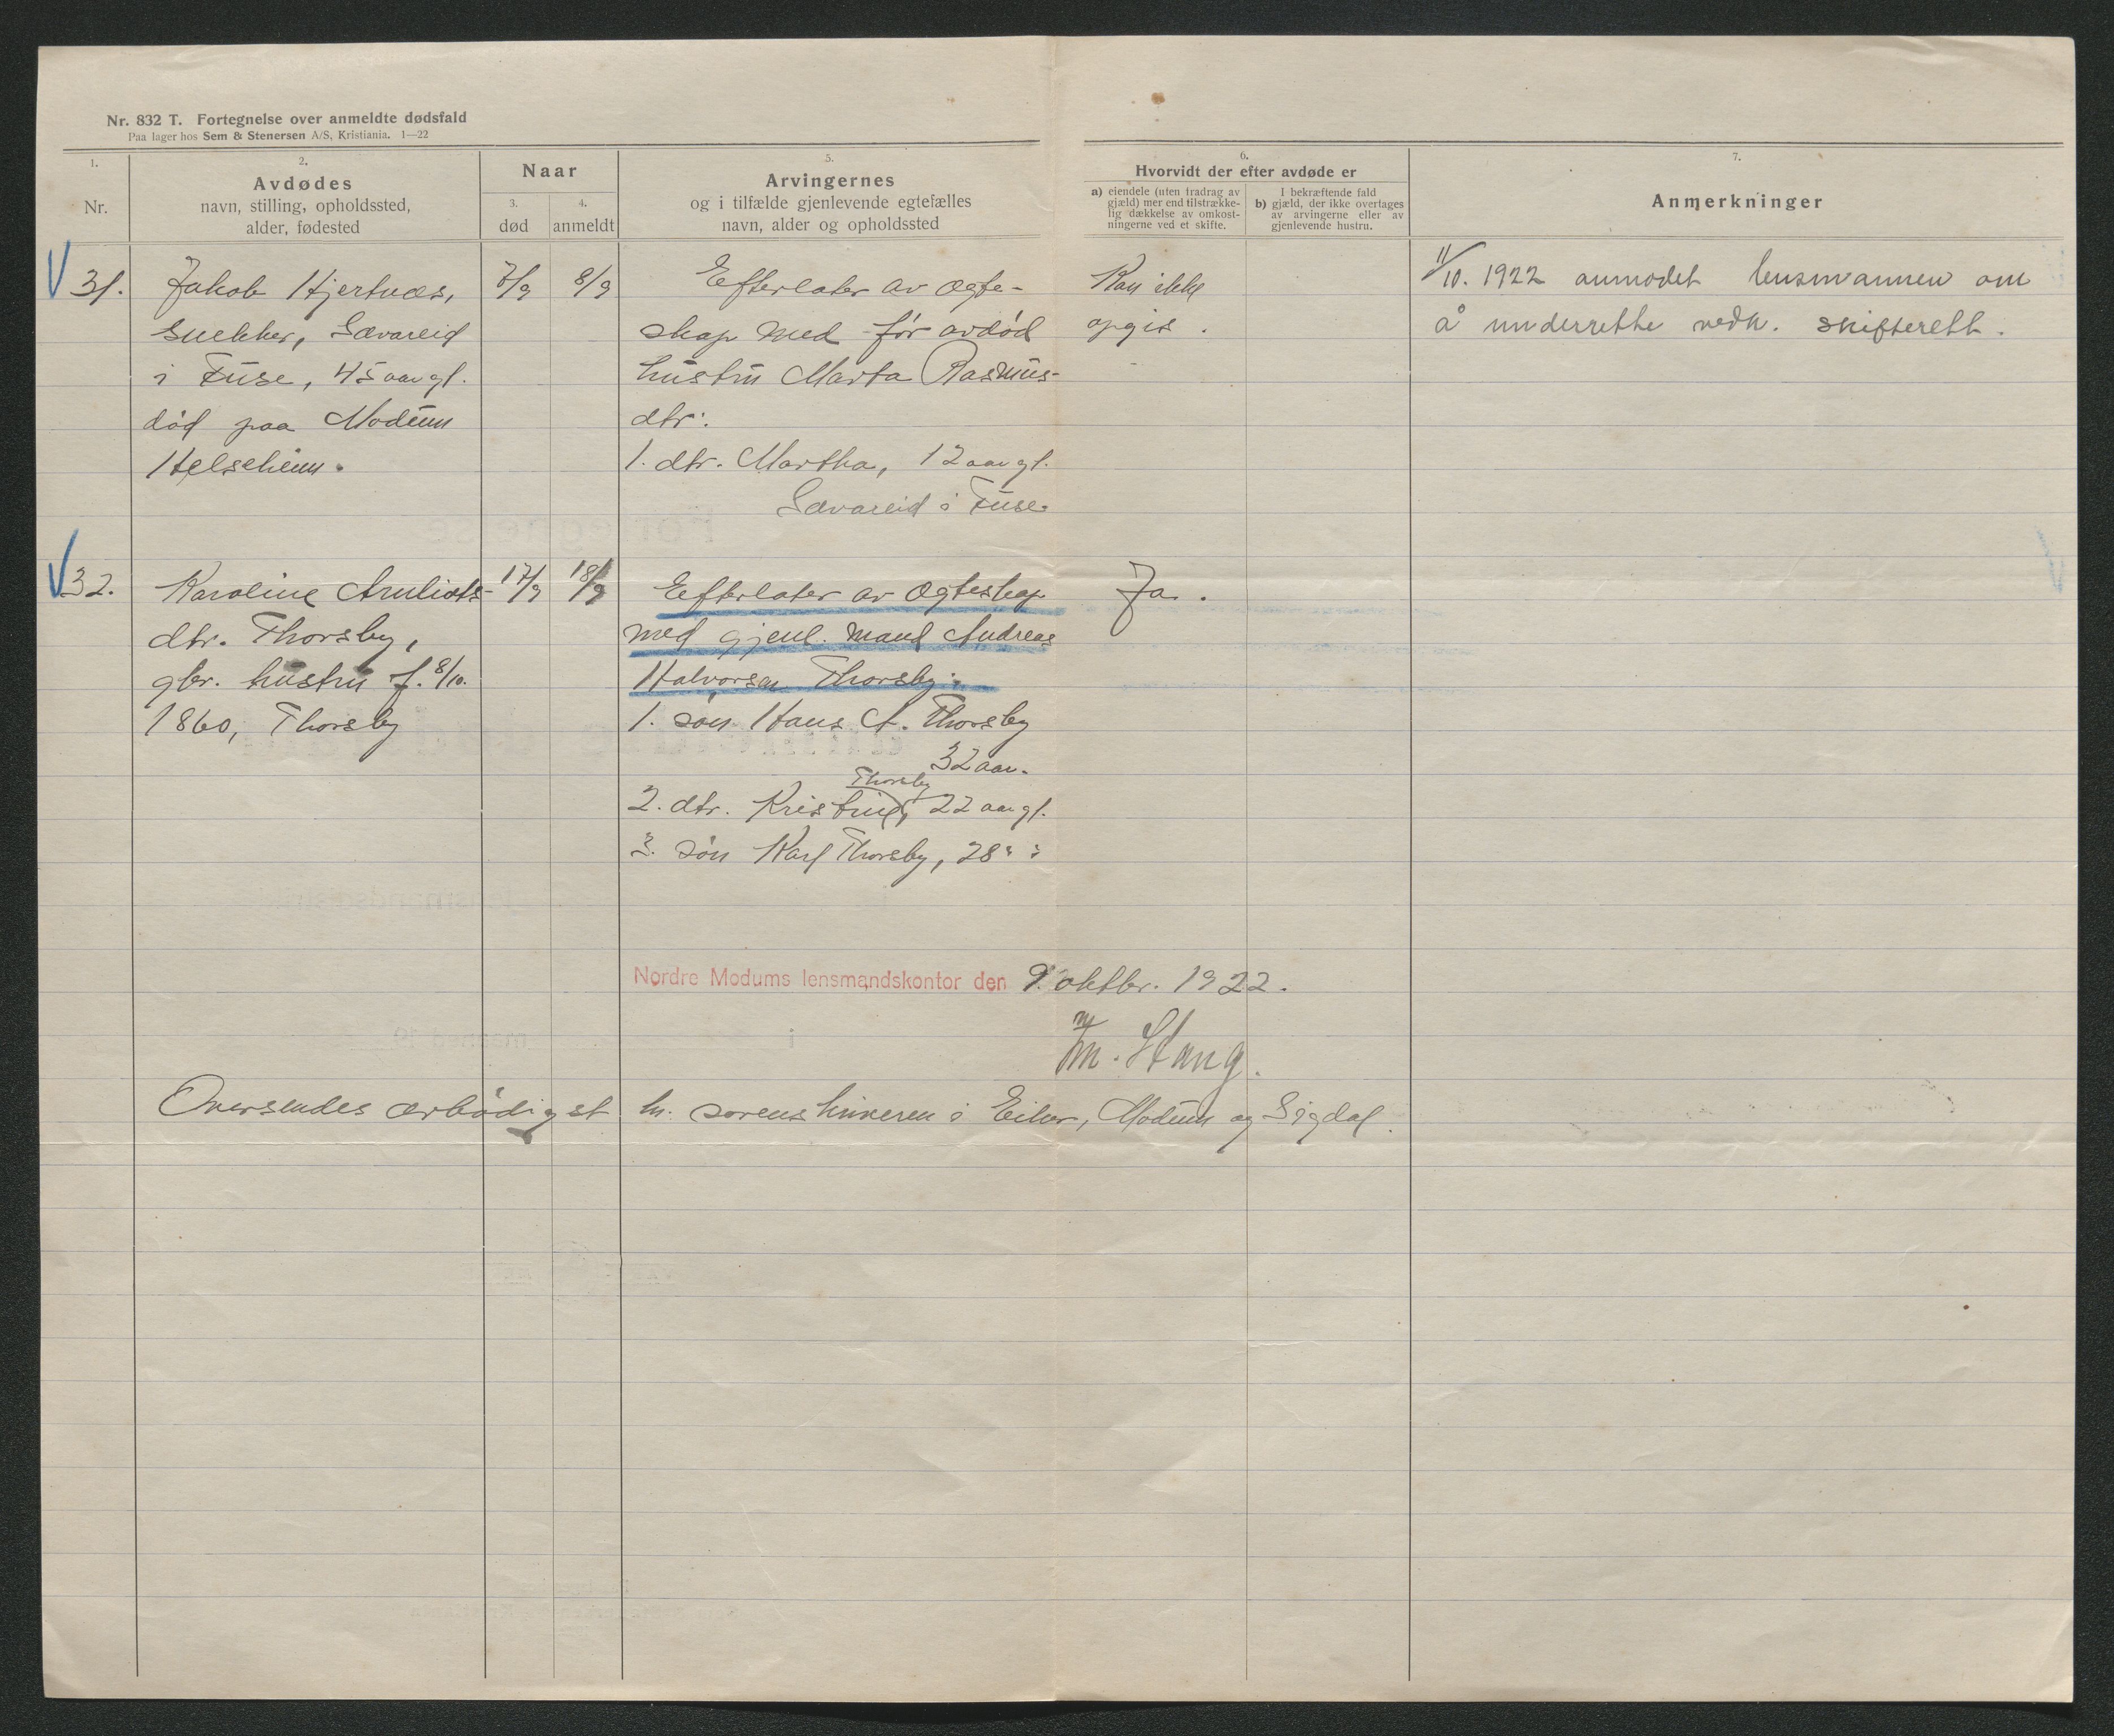 Nr. 832 T. Fortegnelse over anmeldte dødsfald
Paa lager hos Sem & Stenersen A/S, Kristiania. 1—22
1.
Nr.
2.
Avdødes
navn, stilling, opholdssted,
alder, fødested
Naar
3.
død
4.
anmeldt
5.
Arvingernes
og i tilfælde gjenlevende egtefælles
navn, alder og opholdssted
6.
Hvorvidt der efter avdøde er
a) eiendele (uten fradrag av
gjæld) mer end tilstrække-
lig dækkelse av omkost-
ningerne ved et skifte.
I bekræftende fald
b) gjæld, der ikke overtages
av arvingerne eller av
gjenlevende hustru.
7.
Anmerkninger
31.
Jakob Hjertnæs,
snekker, Sævareid
i Fuse, 45 aar gl.
død paa Modum
Helseheim.
7/9
8/9
Efterlater av ægte-
skap med før avdød
hustru Marta Rasmus-
dtr:
1. dtr. Martha, 12 aar gl.
Sævareid i Fuse.
Kan ikke
opgis.
11/10. 1922 anmodet lensmannen om
å underrette vedk. skifterett.
32.
Karoline
dtr. Thorsby,
gbr. hustru f. 8/10.
1860, Thorsby
17/9
18/9
Efterlater av ægteskap
med gjenl. mand Andreas
Halvorsen Thorsby:
1. søn Hans A. Thorsby
32 aar.
Thorsby
2. dtr. Kristine, 22 aar gl.
3. søn Karl Thorsby, 28 " "
Ja.
Nordre Modums lensmandskontor den 9. oktbr. 1922.
M. Stang.
Oversendes ærbødigst hr. sorenskriveren i Eiker, Modum og Sigdal.